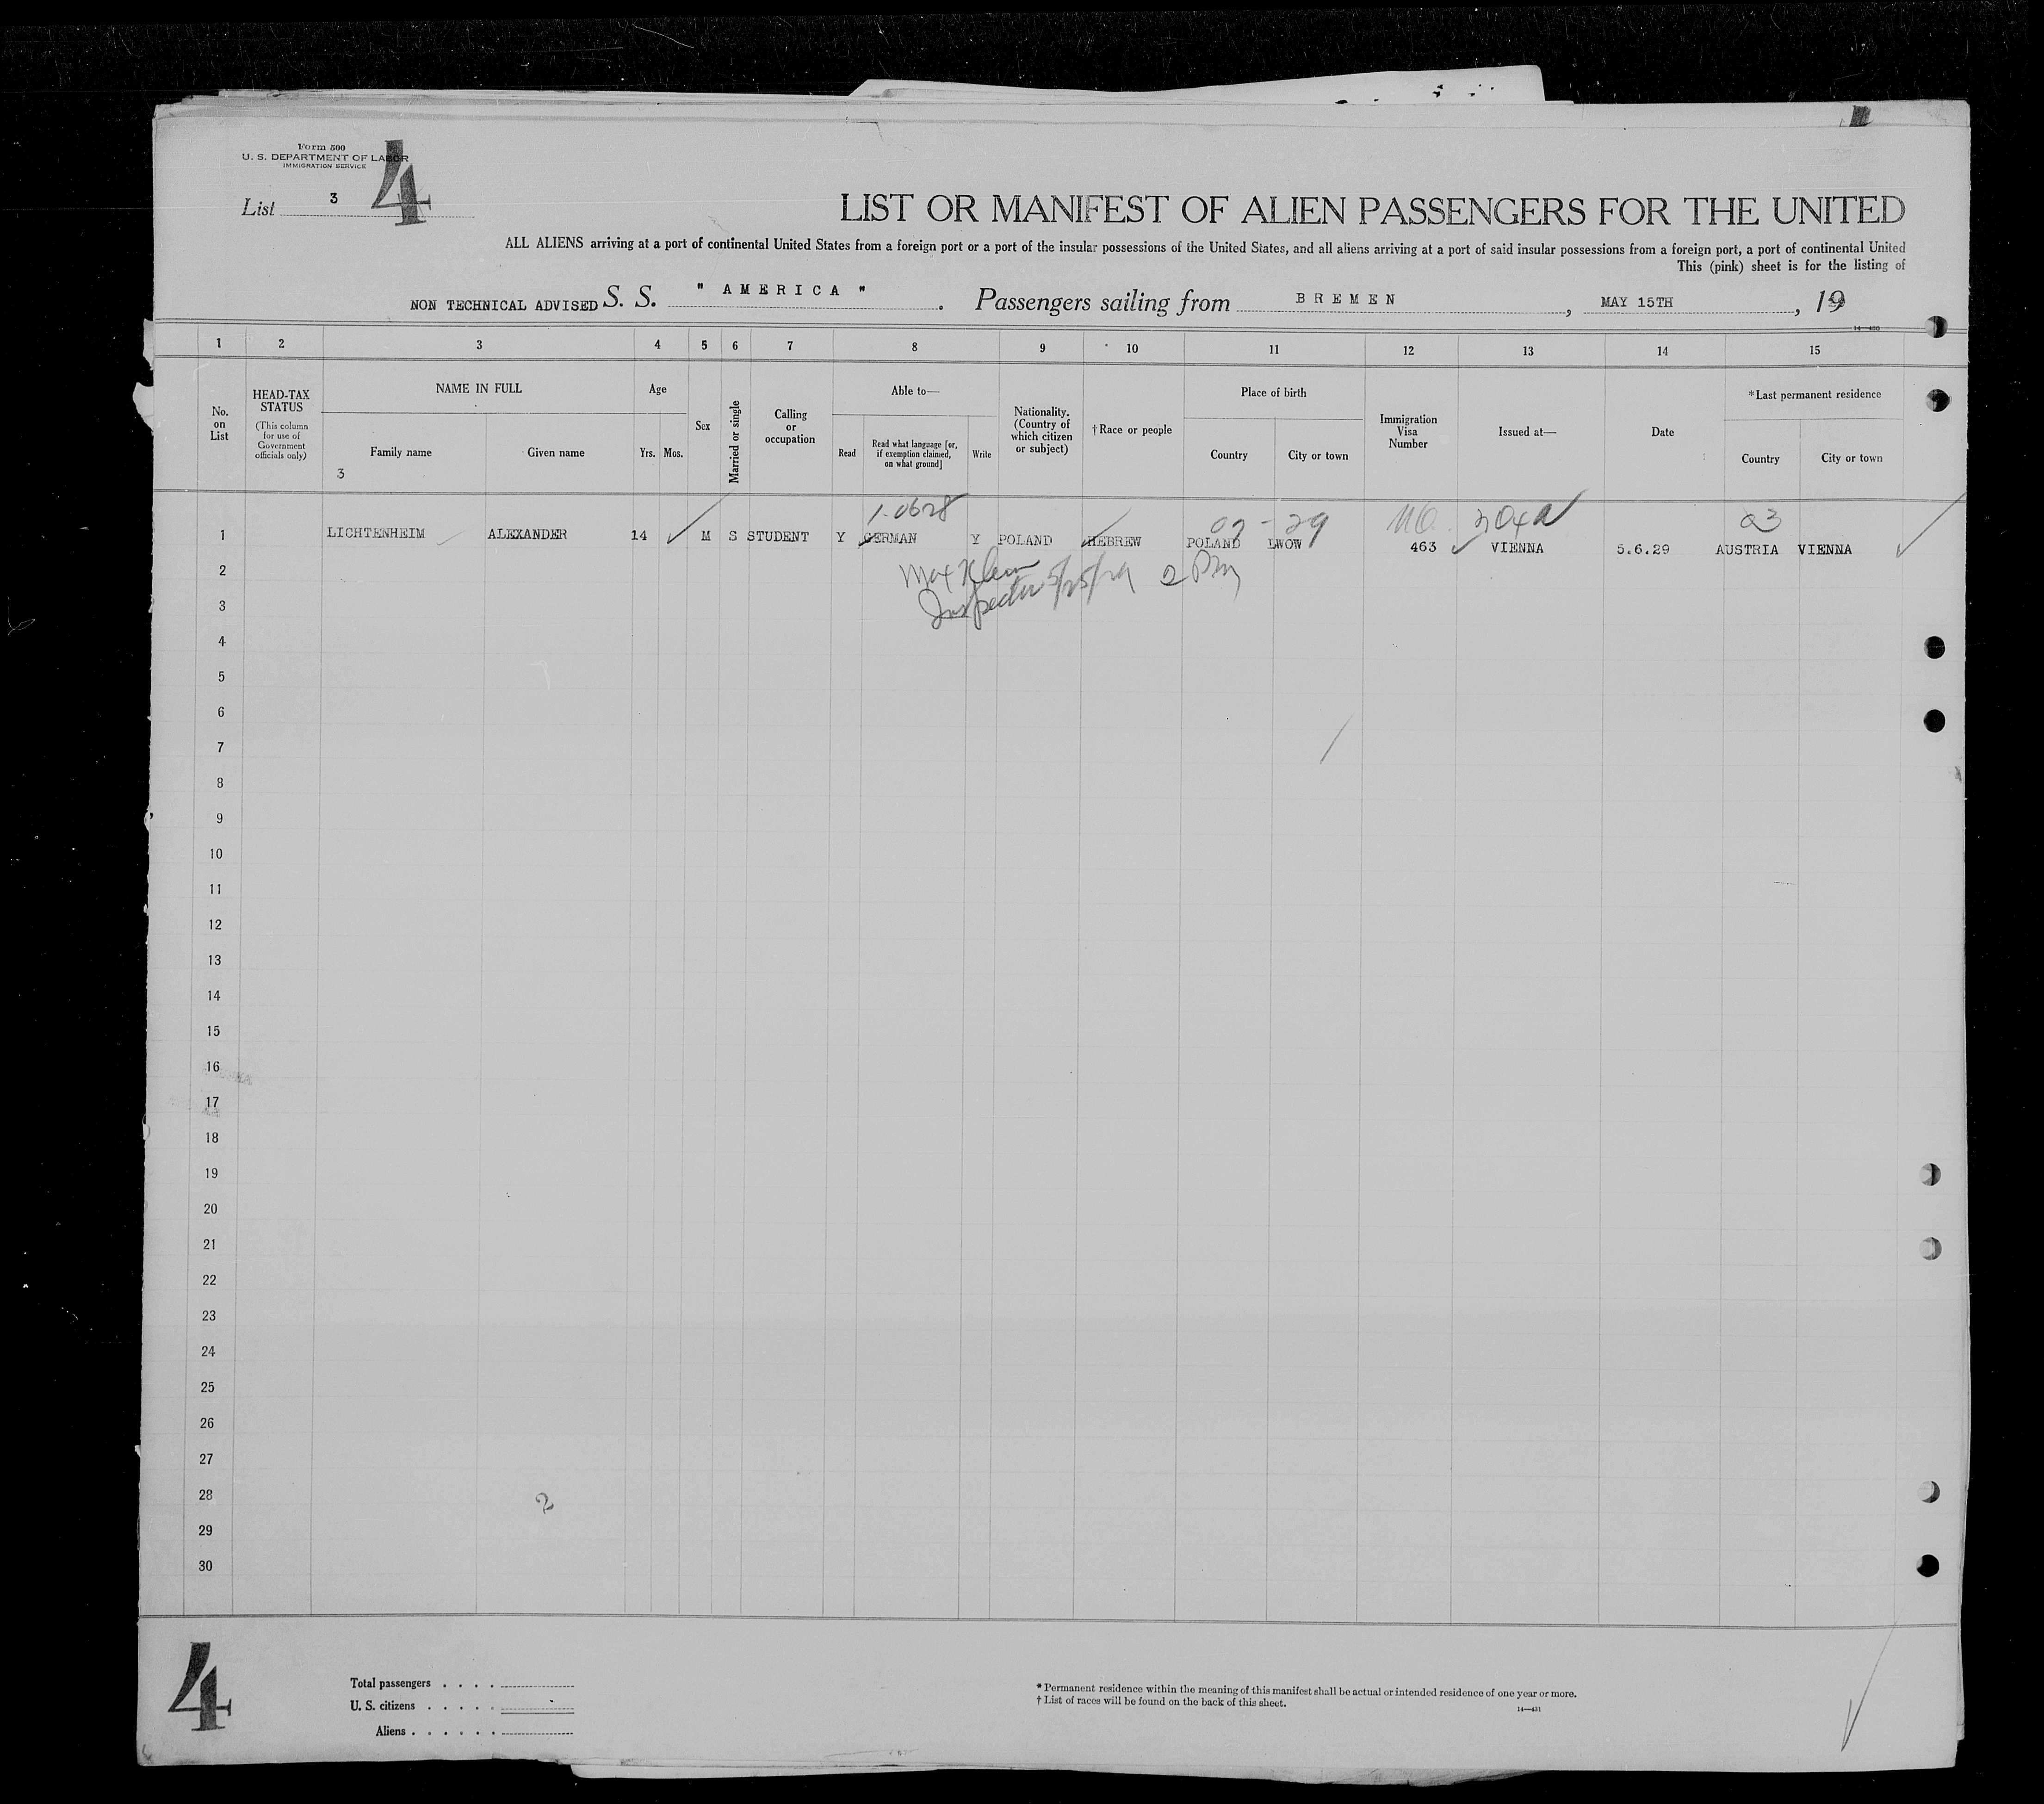 Form 500
U. S. DEPARTMENT OF LABOR
IMMIGRATION SERVICE
List 3
4
LIST OR MANIFEST OF ALIEN PASSENGERS FOR THE UNITED
ALL ALIENS arriving at a port of continental United States from a foreign port or a port of the insular possessions of the United States, and all aliens arriving at a port of said insular possessions from a foreign port, a port of continental United
This (pink) sheet is for the listing of
NON TECHNICAL ADVISED S. S. " AMERICA ". Passengers sailing from BREMEN, MAY 15TH, 19
14—430
1 2 3 4 5 6 7 8 9 10 11 12 13 14 15
No. on List
HEAD-TAX STATUS
(This column for use of Government officials only)
NAME IN FULL
Family name
Given name
3
Age
Yrs. Mos.
Sex
Married or single
Calling or occupation
Able to—
Read
Read what language [or, if exemption claimed, on what ground]
Write
Nationality. (Country of which citizen or subject)
†Race or people
Place of birth
Country
City or town
Immigration Visa Number
Issued at—
Date
*Last permanent residence
Country
City or town
1-0628
02-29 NQ 304a 23
1 LICHTENHEIM ALEXANDER 14 M S STUDENT Y GERMAN Y POLAND HEBREW POLAND LWOW 463 VIENNA 5.6.29 AUSTRIA VIENNA
Max Klein
Inspector 5/25/29 2 PM
2
3
4
5
6
7
8
9
10
11
12
13
14
15
16
17
18
19
20
21
22
23
24
25
26
27
28
2
29
30
4
Total passengers . . . .
U. S. citizens . . . . .
Aliens . . . . . .
* Permanent residence within the meaning of this manifest shall be actual or intended residence of one year or more.
† List of races will be found on the back of this sheet.
14—431